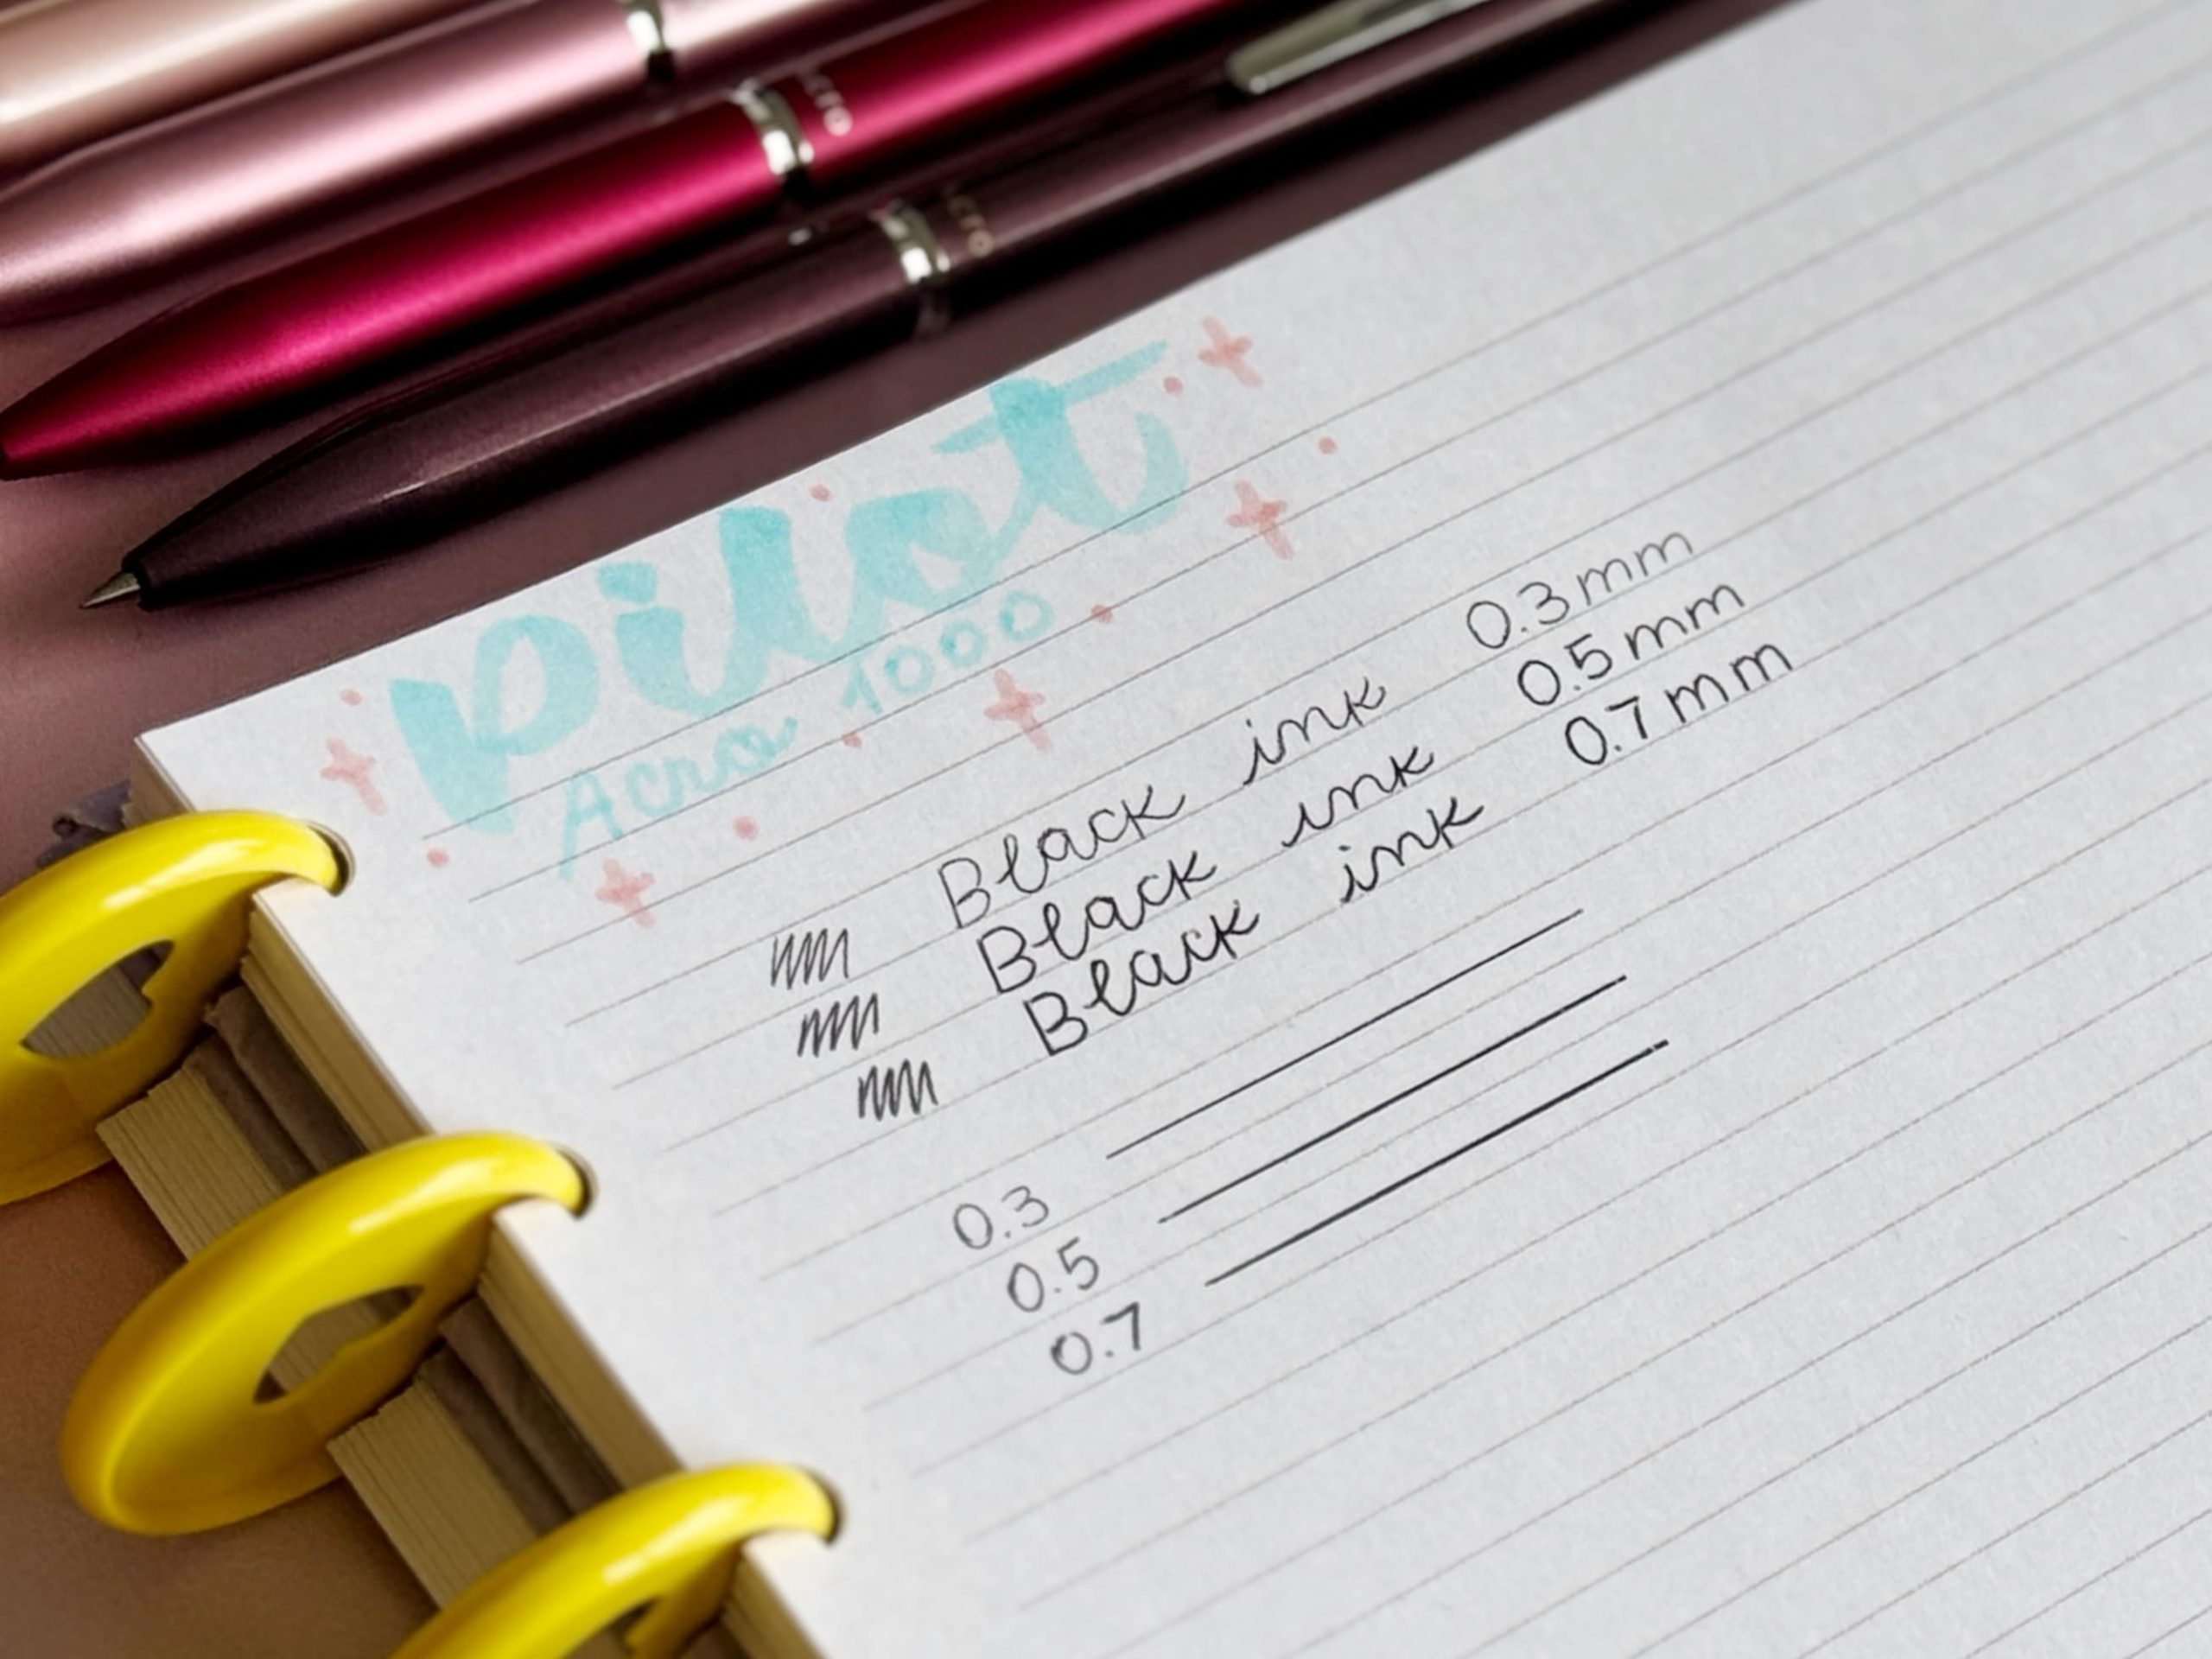 acro
acro
pilot
Acro 1000
Black ink 0.3mm
Black ink 0.5mm
Black ink 0.7mm
0.3
0.5
0.7